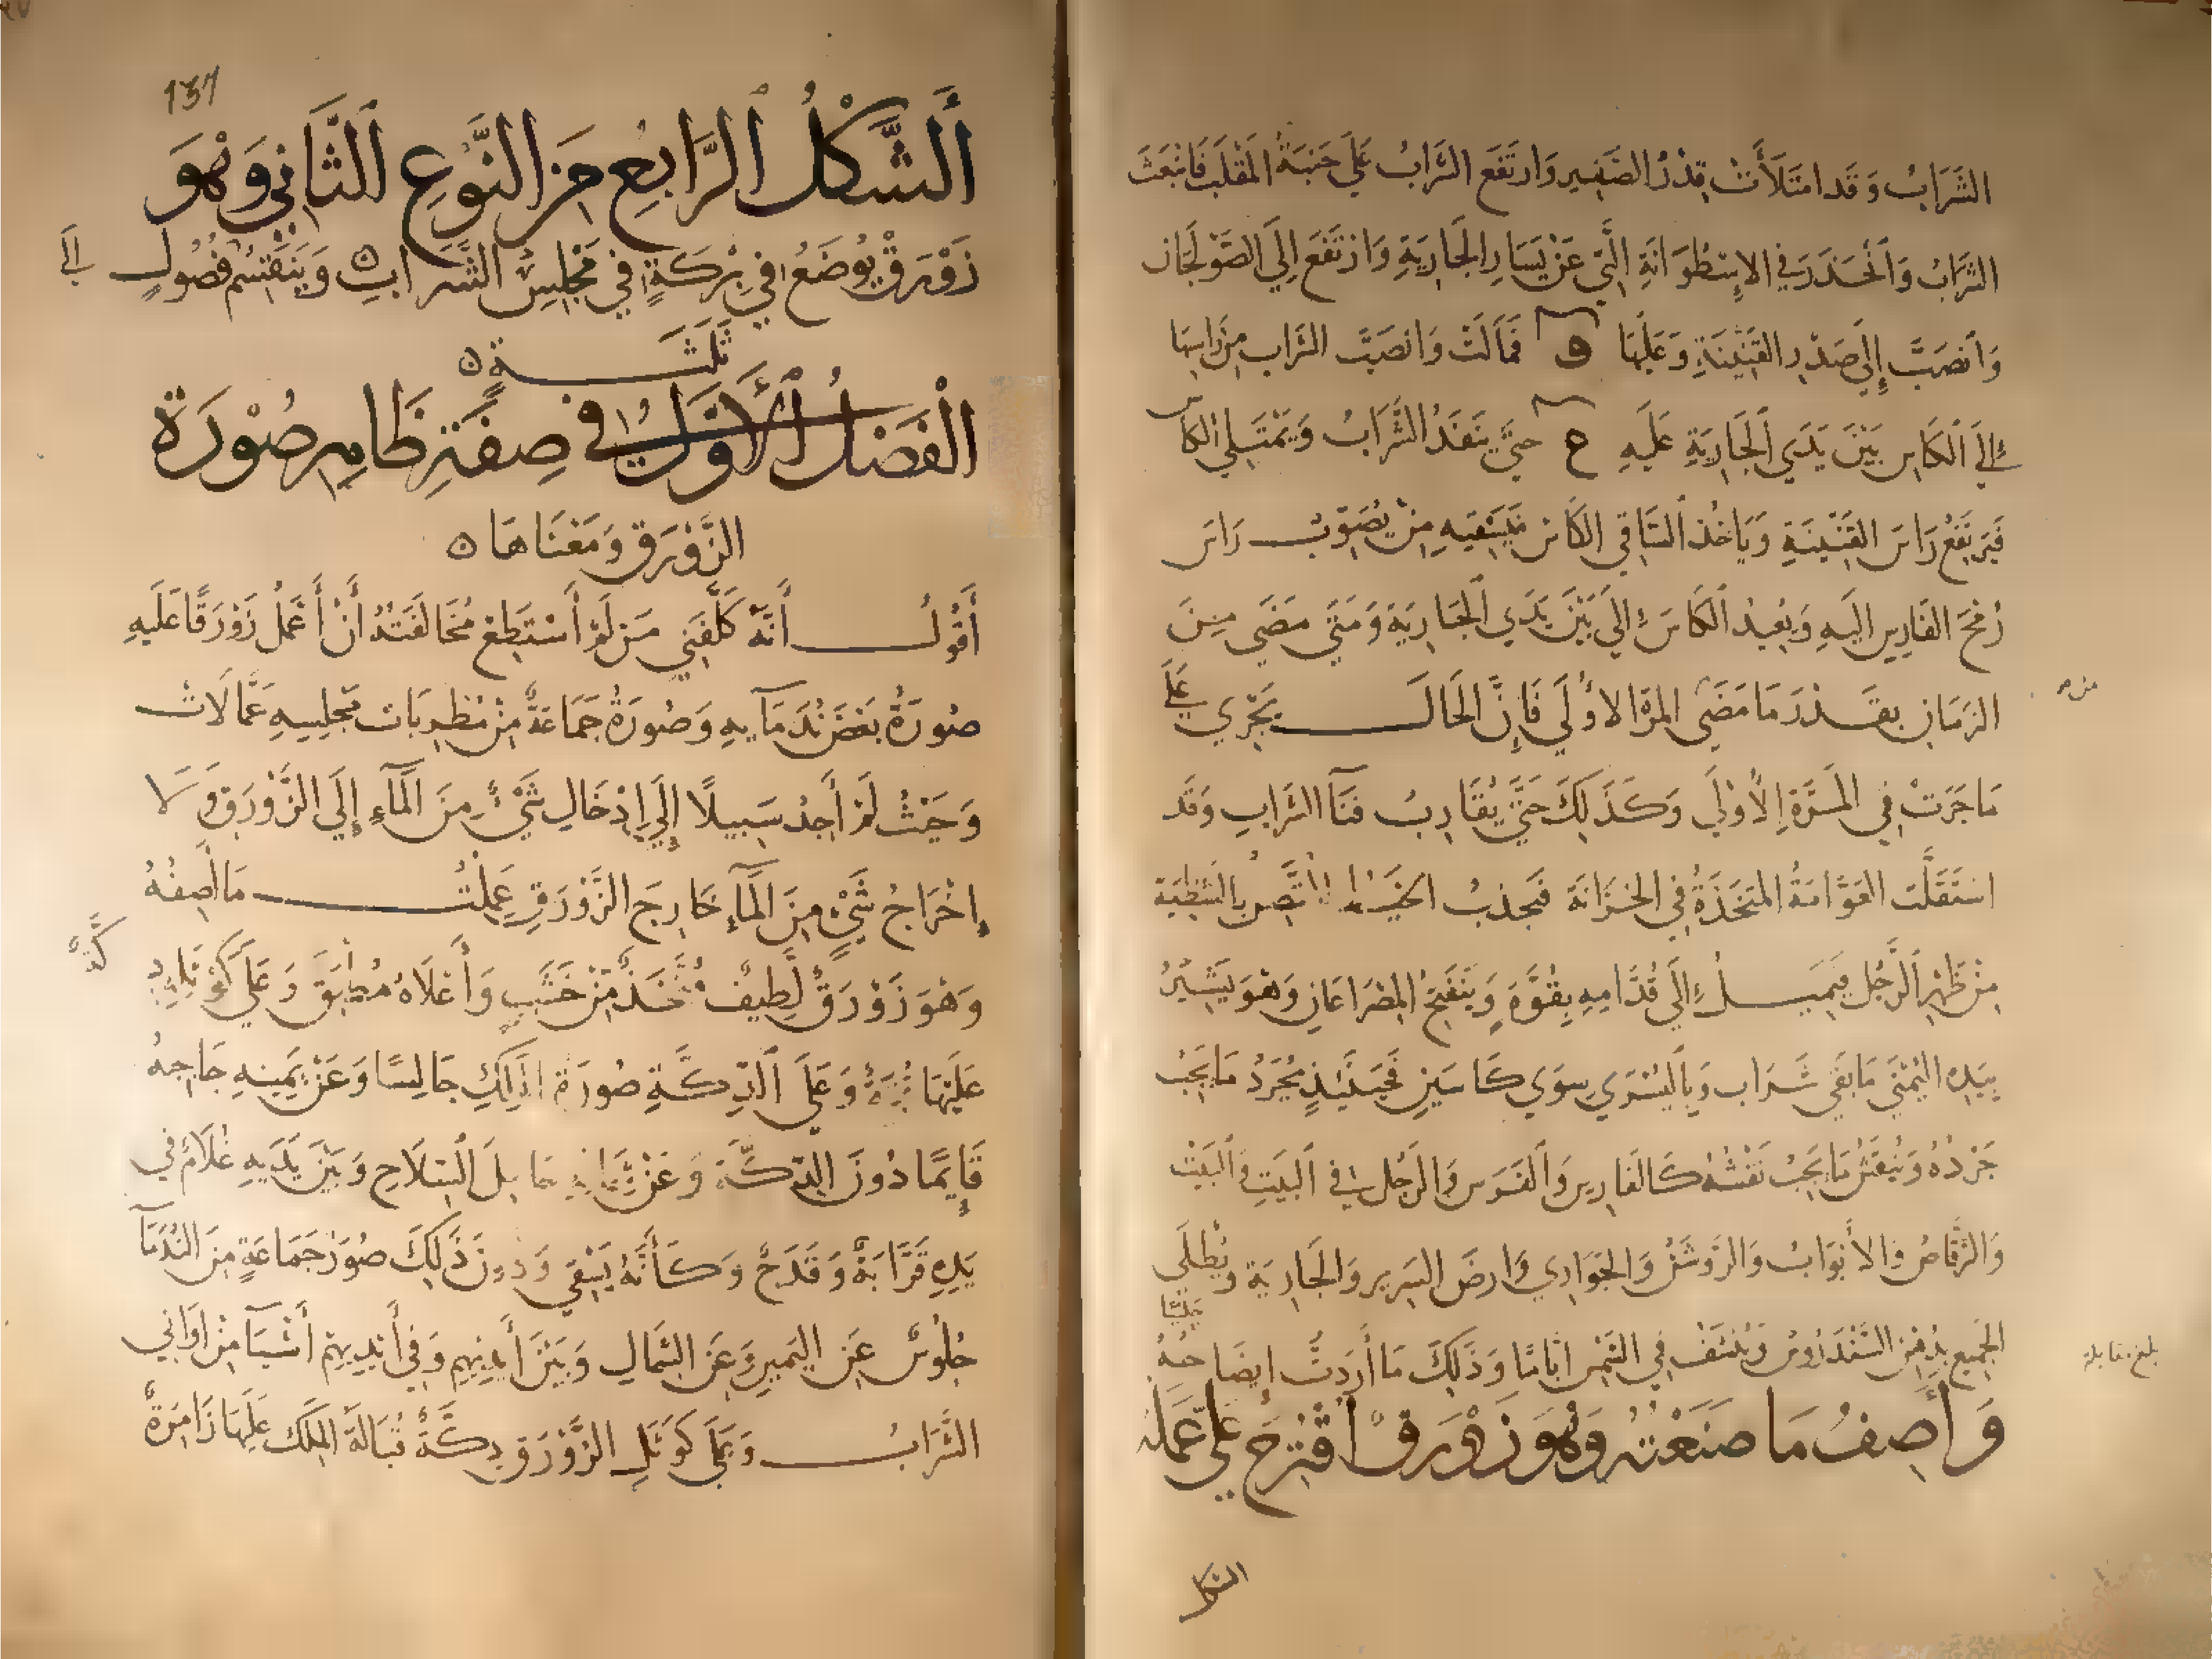 الشَّرَابُ وَقَد امتَلَأَتْ قِدْرُ الصَّفِيرِ وَارتَفَع الشَّرَابُ عَلى جَنبَةُ المَقْلَب فَانبَعَثَ
الشَّرَابُ وَانْحَدَرَ فِي الاِسْطُوَانَةِ الَّتِي عَنْ يَسَارِ الجَارِيَةِ وَارْتَفَعَ إِلَى الصَّوْلَجَان
وَانصَبَّ إِلَى صَدْرِ القَنِّينَةِ وَعَلَيهَا و فَمَالَتْ وَانصَبَّ الشَّرَاب مِنْ رَاسِهَا
إِلَى الْكَاسِ بَيْنَ يَدَيِ الْجَارِيَةِ عَلَيهِ ع حَتَّى يَنفَدُ الشَّرَابُ وَيَمْتَلِي الكَاس
فَيَرتَفِعُ رَاسَ القَنِّينَةِ وَيَاخُذ السَّاقِي الكَاسَ فَيَسْقِيهِ مَنْ يُصَوِّبُ رَاسَ
رُمْحَ الفَارِسِ اليَهِ وَيُعِيدُ الْكَاسَ إِلَى بَيْنَ يَدَيِ الجَارِيَةِ وَمَتَى مَضَى مِنَ
الزَمَانِ بِقَدْرِ مَا مَضَى المرَّة الاُولَى فَإِنَّ الحَالَ يَجْرِي عَلَى
مَا جَرَتْ فِي المَرَّةِ الأُوْلَى وَكَذَلِكَ حَتَّى يُقَارِبُ فَنَآ الشَّرَابِ وَقَد
استَقَلَّتْ العَوَّامَةُ المتَّخَذَةُ فِي الخزَانَة فَيَجذبُ الخَيْطُ المتَّصِلُ بالشَظِيَّة
مِنْ ظَهْرِ الرَّجُلِ فَيَمِيلُ إِلَى قُدَّامِهِ بِقُوَّةٍ وَيَنفَتِحُ المِصْرَاعَانِ وَهُوَ يَشِيرُ
بِيَدِهِ اليُمْنَى مَا بَقِيَ شَرَاب وَبِاليُسْرَى سِوَى كَاسَيْنِ فَحِينَئِذٍ يُجَرَّدُ مَا يَجبُ
جَرْدُهُ وَيُنقَشُ مَا يَجبُ نَقْشُهُ كَالفَارِسِ وَالفَرَسِ وَالرَجُل فِي البَيْتِ وَالبَيْتُ
وَالرَّقَّاصُ وَالأَبْوَابُ وَالرَّوشَنُ وَالجَوَارِي وَارضَ السَّرِيرِ وَالجَارِيَة وَيُطْلَى
الجَمِيع بِدُهْنِ السَّنْدَرُوسُ وَيُنَشَّفُ فِي الشَّمْسِ ايَّامًا وَذَلِكَ مَا أَرَدتُ إِيضَاحَهُ جَلِيًّا
وَأَصِفُ مَا صَنَعْتُهُ وَهُوَ زَوْرَقٌ اقْتُرِحَ عَلَيَّ عَمَلُهُ
بلغ مقابلة
الشكل
137
أَلشَّكْلُ الرَّابِعِ مِنَ النَّوْعِ الثَّانِي وَهْوَ
زَوْرَقٌ يُوضَعُ فِي بِرْكَةٍ فِي مَجْلِسِ الشَّرَابِ وَيَنْقَسِمُ فُصُولٍ إلى
ثَلَثَةٍ
الْفَصْلُ الأَوَّلُ فِي صِفَةِ ظَاهِرِ صُوْرَةِ
الزَّوْرَقِ وَمَعْنَاهَا
أَقُولُ أَنَّهُ كَلَّفَنِي مَنْ لَمْ أَسْتَطِعْ مُخَالَفَتَهُ أَنْ أَعْمَلُ زَوْرَقًا عَلَيهِ
صُورَةُ بَعْضَ نُدَمَآيِهِ وَصُورَةُ جَمَاعَةٌ مِنْ مُطْرِبَاتِ مَجْلِسِهِ عَمَّالَاتْ
وَحَيْثُ لَمْ أَجِدْ سَبِيلًا إِلَى إِدْخَالِ شَيْءٍ مِنَ المَآءِ إِلَى الزَّوْرَقِ وَلَا
إِخْرَاجُ شَيْءٍ مِنَ المَآءِ خَارِجَ الزَّوْرَقِ عَمِلْتُ مَا أَصِفُهُ
وَهُوَ زَوْرَقٌ لَطِيفٌ مُتَّخَذٌ مِنْ خَشَبٍ وَأَعْلَاهُ مُطْبَقٌ وَعَلَى كَوْثَلِهِ دكَّةٌ
عَلَيْهَا قُبَّةٌ وَعَلَى الدِّكَّةِ صُورَة المَلِكِ جَالِسًا وَعَنْ يَمِينِهِ حَاجِبُهُ
قَايِمًا دُونَ الدِّكَّة وَعَنْ شِمَالِهِ حَامِلَ السِّلَاحِ وَبَيْنَ يَدَيهِ غُلَامٌ فِي
يَدِهِ قَرَّابَةٌ وَقَدَحٌ وَكَأَنَّهُ يَسْقِي وَدُونَ ذَلِكَ صُوَرُ جَمَاعَةٍ مِنَ النُّدَمَآ
جُلُوسٌ عَنِ اليَمِينِ وَعَنِ الشِّمَالِ وَبَيْنَ أَيدِيهِم وَفِي أَيدِيهِمْ أَشْيَا مِنْ اوَانِي
الشَّرَابُ وَعَلَى كَوْثَلِ الزَّوْرَقِ دِكَّةٌ قُبَالَةَ المَلِكِ عَلَيْهَا زَامِرَةٌ